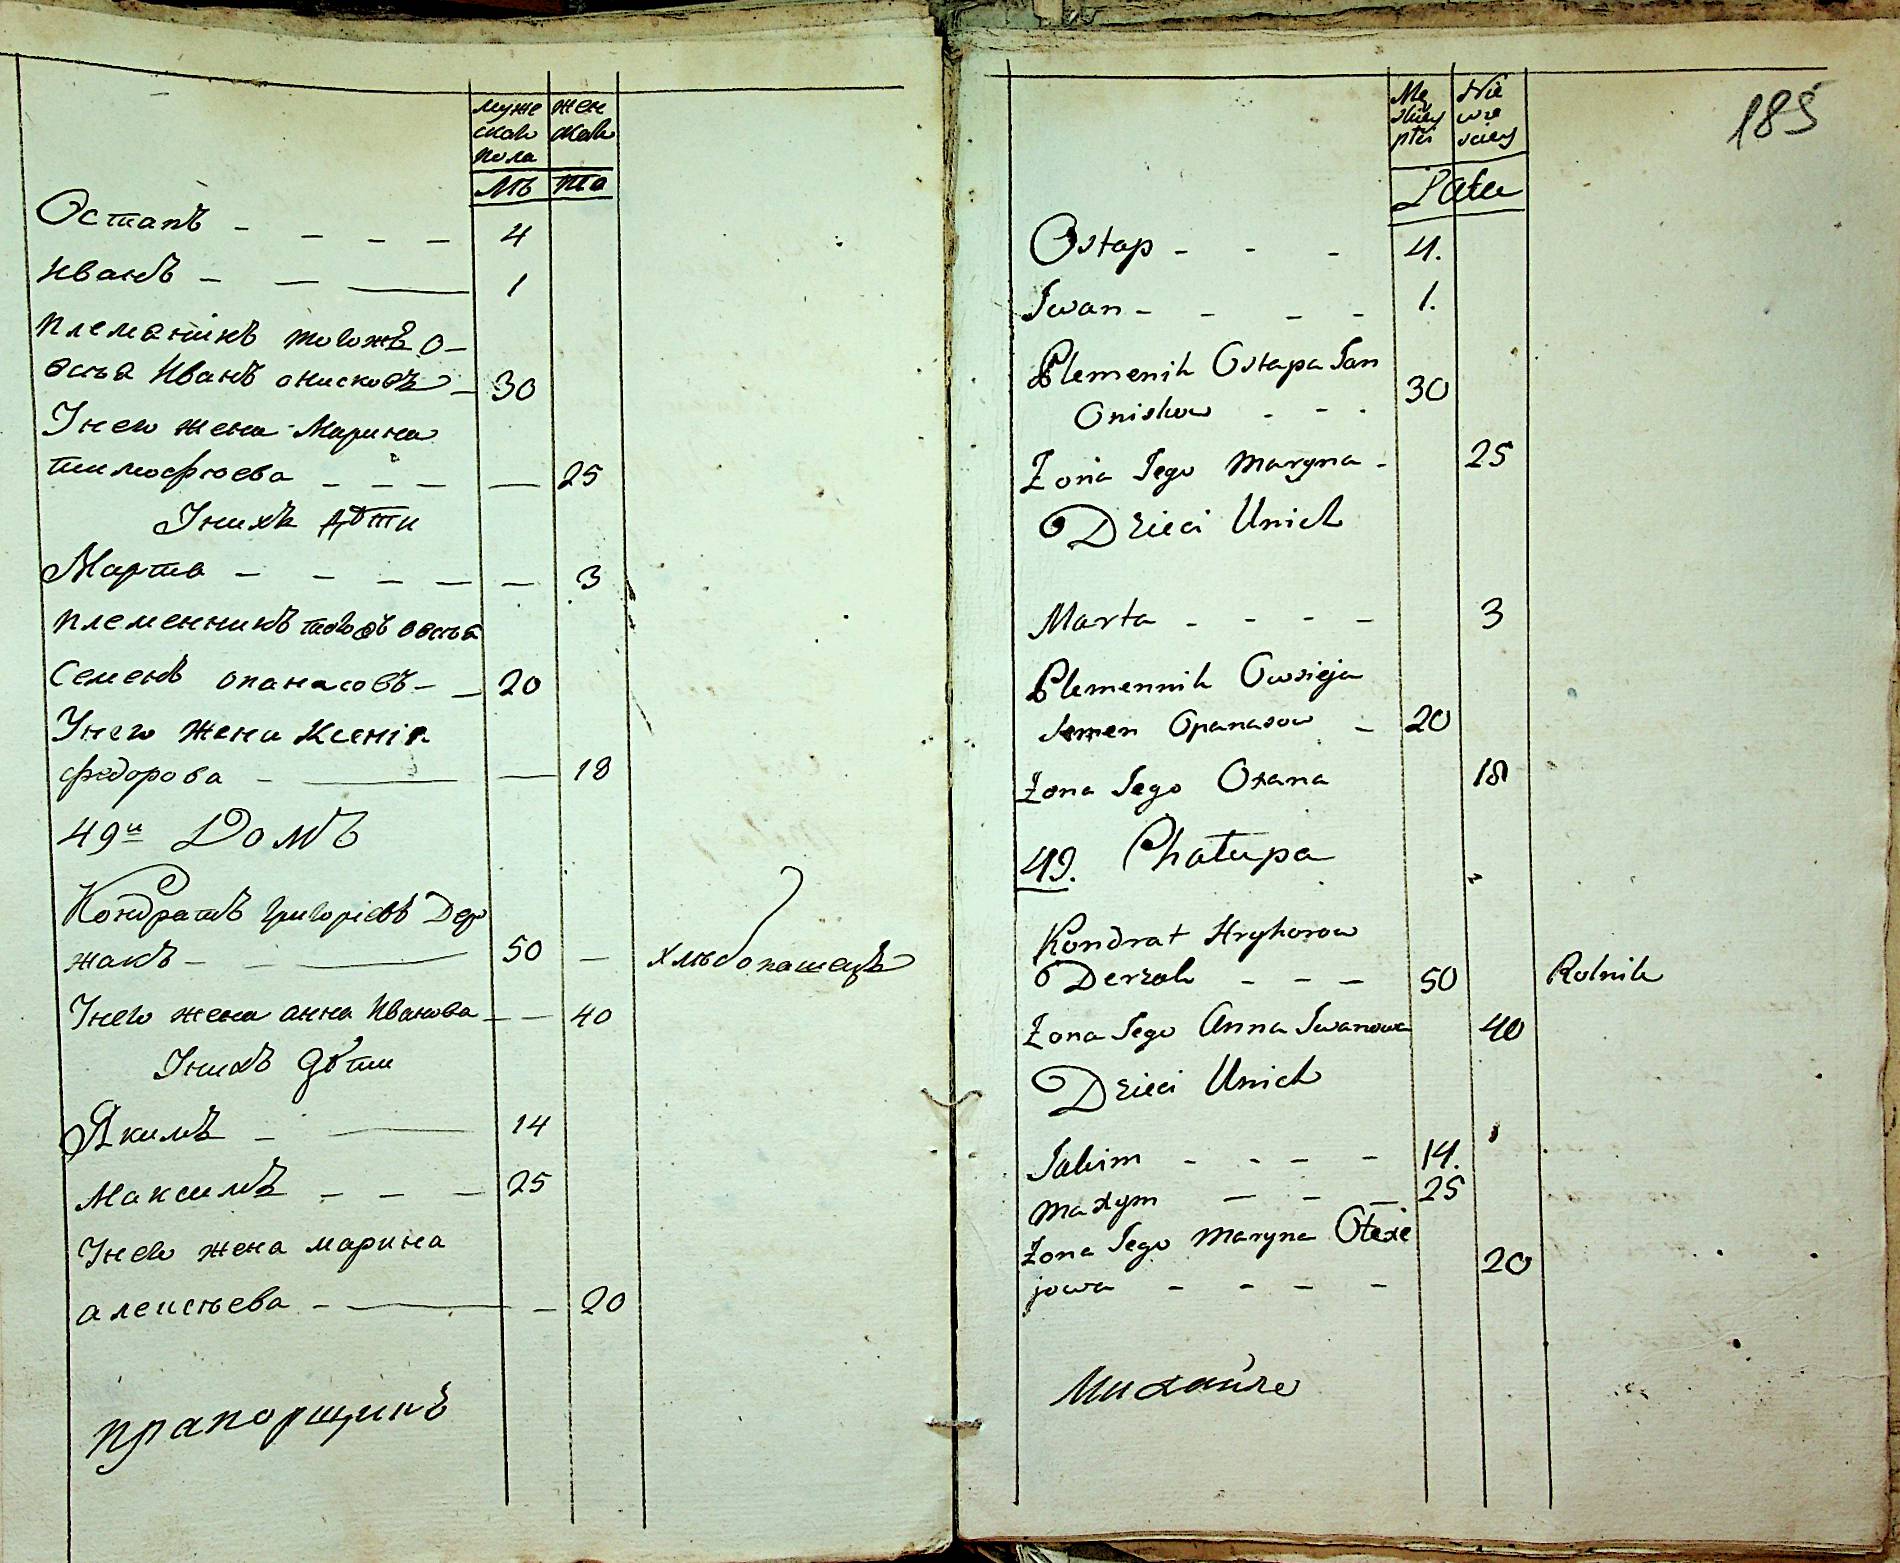 муже
скаго
пола
жен
скаго
лѣ
та
Остапъ - - - - 4
Иванъ - - - 1
племянникъ тогожъ о-
всѣя Иванъ онисковъ - 30
У него жена Марина
тимофѣева - - - - 25
У нихъ дѣти
Марта - - - - - 3
племенникъ тогожъ овсѣя
Семенъ опанасовъ - - 20
У него жена Ксенія
федорова - - - 18
49й Домъ
Кондратъ григоріевъ Дер
жакъ - - - 50 - хлѣбопашецъ
У него жена анна Иванова - - 40
У нихъ дѣти
Якимъ - - 14
Максимъ - - - 25
У него жена марина
алексѣева - - - 20
прапорщикъ
185
Mę
skiey
płci
Nie
wie
sciey
Lata
Ostap - - - 4.
Iwan - - - - 1.
Plemenik Ostapa Jan
Oniskow - - - 30
Żona Jego Maryna - 25
Dzieci Unich
Marta - - - - 3
Plemennik Owsieja
Semen Opanasow - 20
Żona Jego Oxana 18
49. Chałupa
Kondrat Hryhorow
Derzak - - - 50 Rolnik
Żona Jego Anna Iwanowa 40
Dzieci Unich
Jakim - - - - 14.
Maxym - - - 25
Żona Jego Maryna Ołexie
jowa - - - - 20
Михайло